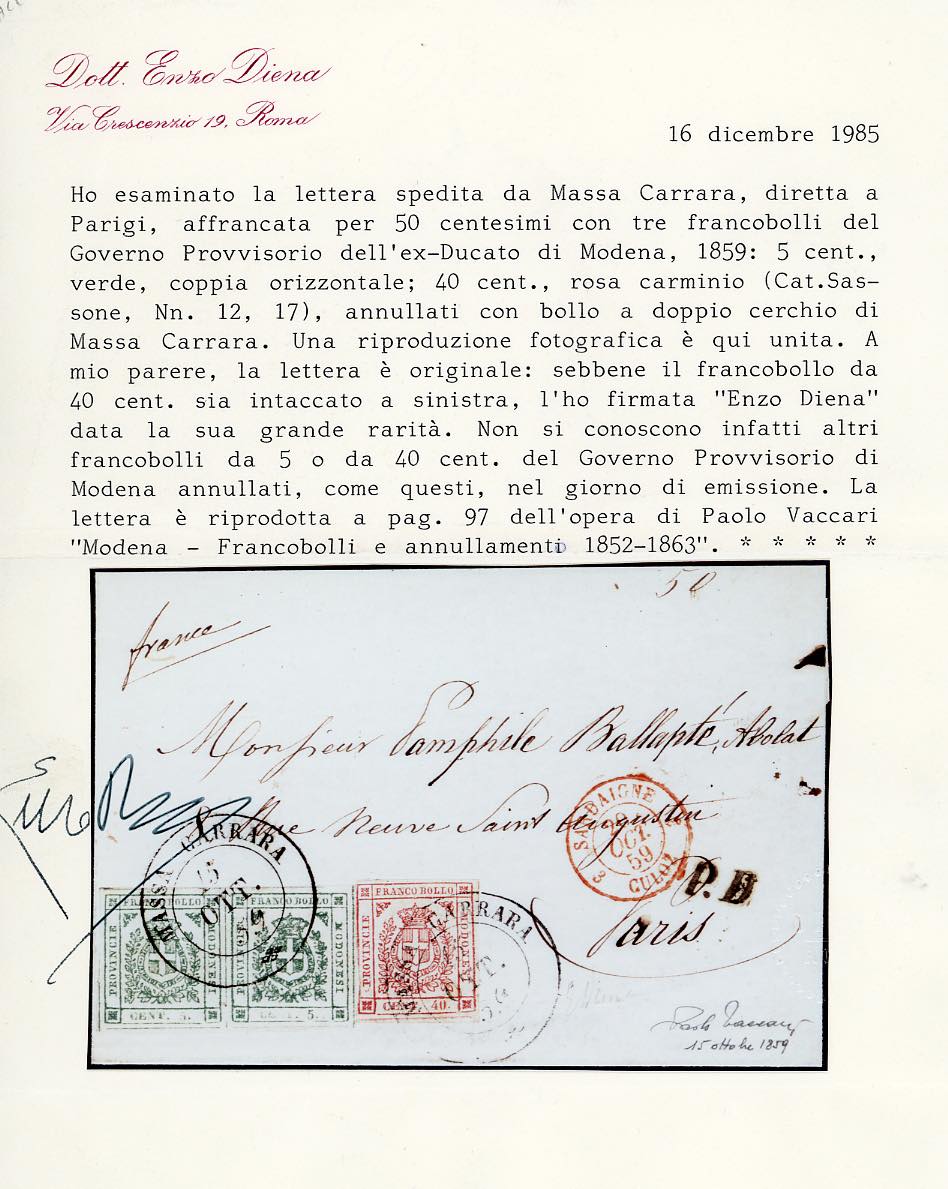 Dott. Enzo Diena
Via Crescenzio 19, Roma
16 dicembre 1985
Ho esaminato la lettera spedita da Massa Carrara, diretta a
Parigi, affrancata per 50 centesimi con tre francobolli del
Governo Provvisorio dell'ex-Ducato di Modena, 1859: 5 cent.,
verde, coppia orizzontale; 40 cent., rosa carminio (Cat.Sas-
sone, Nn. 12, 17), annullati con bollo a doppio cerchio di
Massa Carrara. Una riproduzione fotografica è qui unita. A
mio parere, la lettera è originale: sebbene il francobollo da
40 cent. sia intaccato a sinistra, l'ho firmata "Enzo Diena"
data la sua grande rarità. Non si conoscono infatti altri
francobolli da 5 o da 40 cent. del Governo Provvisorio di
Modena annullati, come questi, nel giorno di emissione. La
lettera è riprodotta a pag. 97 dell'opera di Paolo Vaccari
"Modena - Francobolli e annullamenti 1852-1863". * * * * *
50
france
Monsieur Pamphile Ballapté, Avocat
Rue Neuve Saint Augustin
Paris
SARDAIGNE
OCT.
59
3 CULOZ
P.D
MASSA CARRARA
15
OTT.
59
FRANCO BOLLO
PROVINCIE
MODONESI
CENT. 5.
FRANCO BOLLO
MODONESI
CENT. 5.
CARRARA
OTT.
FRANCO BOLLO
PROVINCIE
MODONESI
CENT. 40.
Paolo Vaccari
15 ottobre 1859